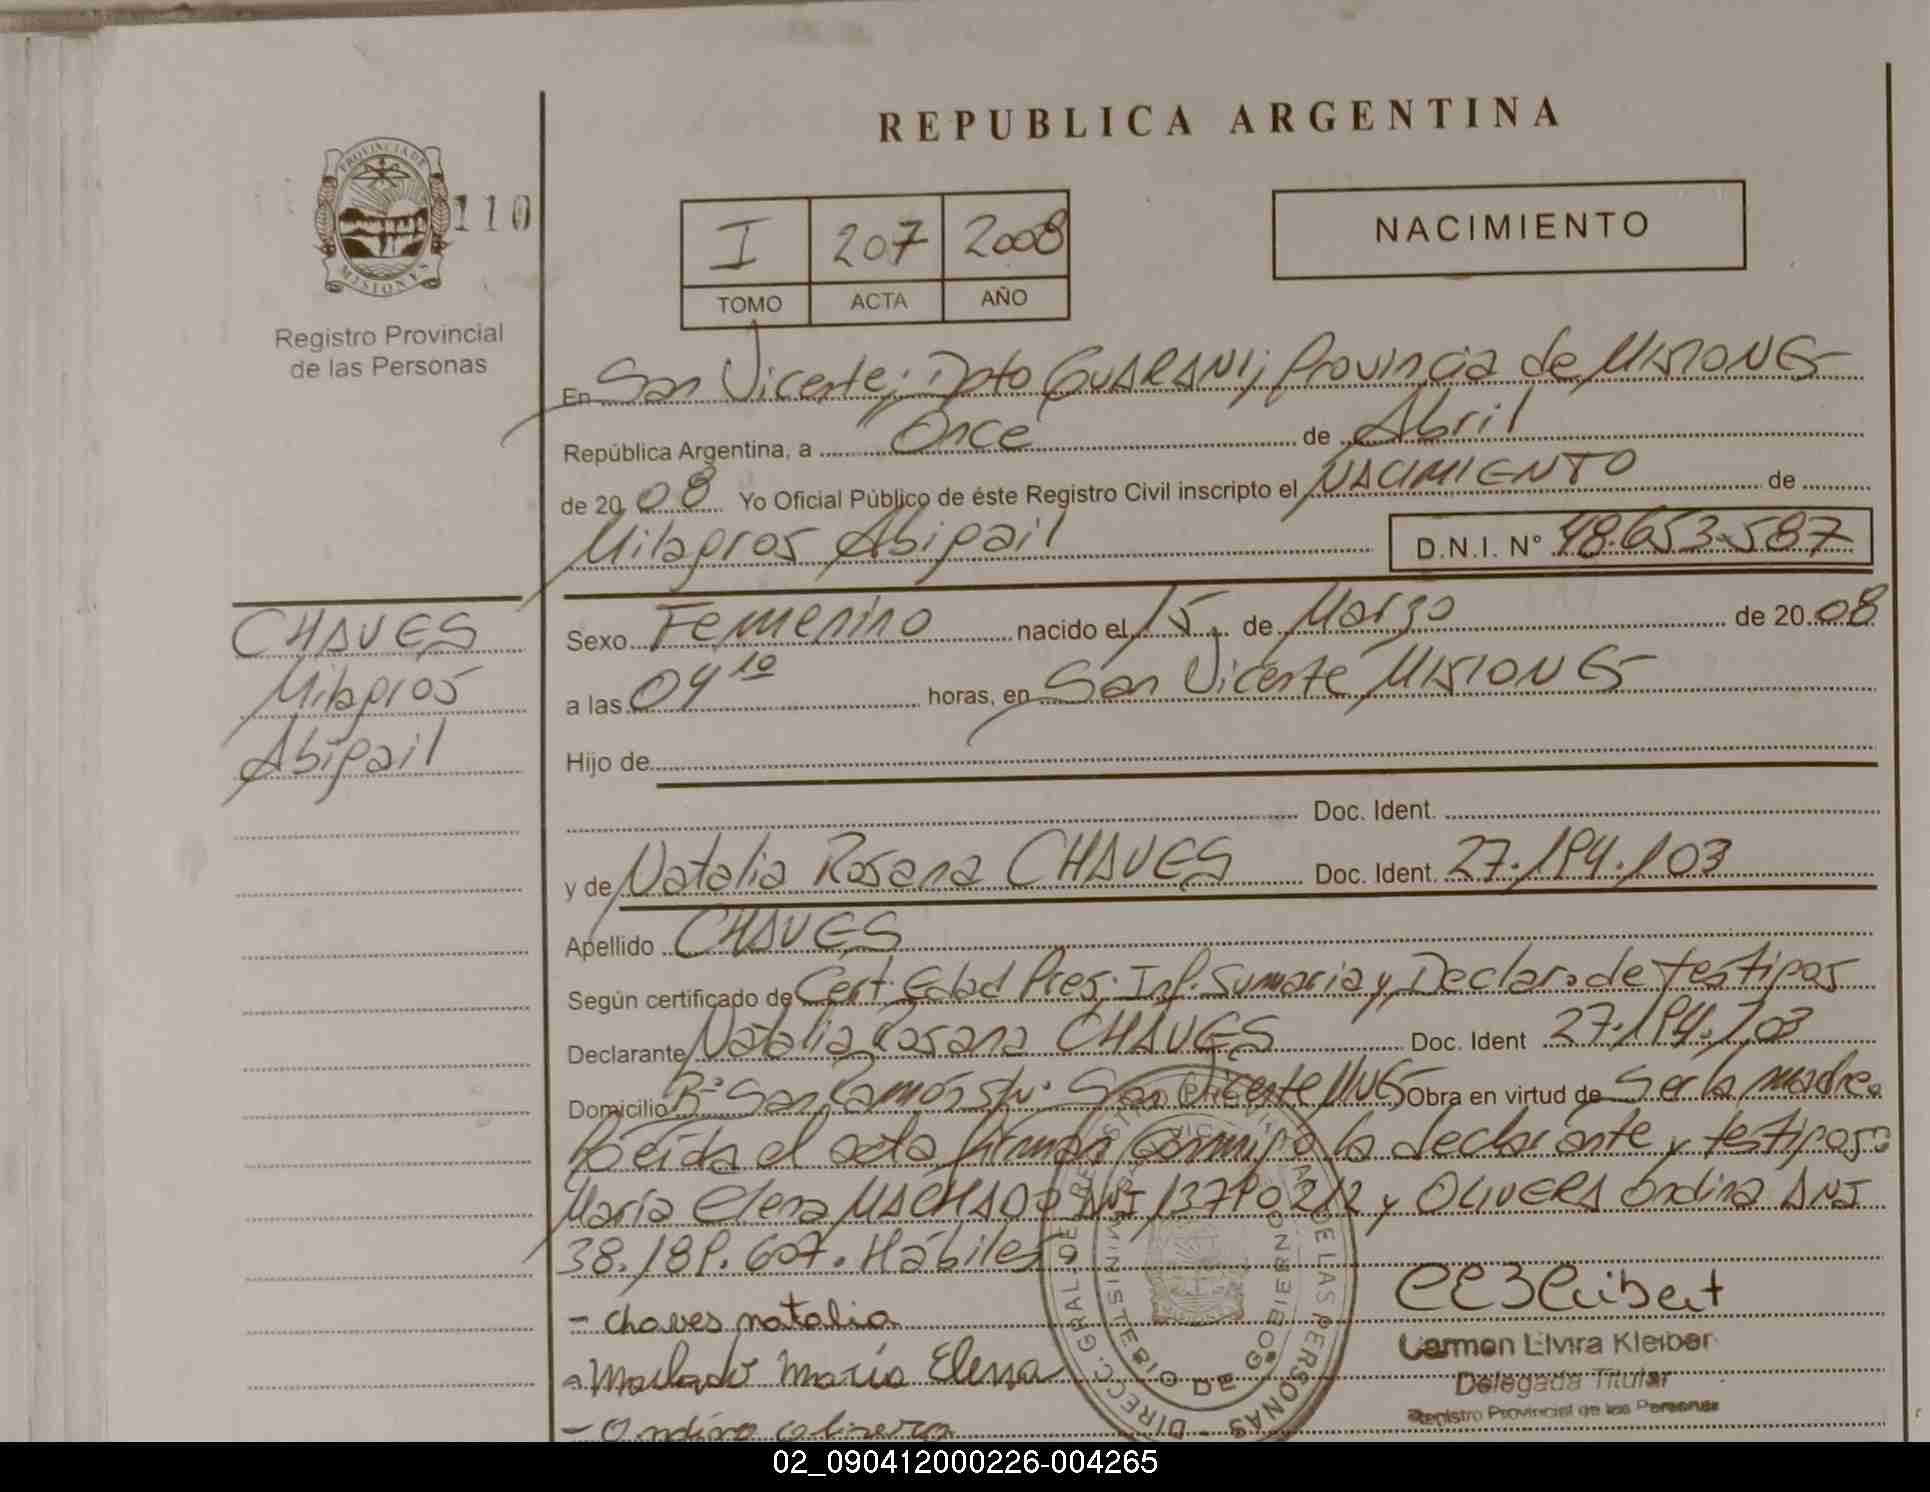 REPUBLICA ARGENTINA
PROVINCIA DE
MISIONES
110
Registro Provincial
de las Personas
I 207 2008
TOMO ACTA AÑO
NACIMIENTO
En San Vicente; Dpto GUARANI; Provincia de MISIONES
República Argentina, a Once de Abril
de 20 08 Yo Oficial Público de éste Registro Civil inscripto el NACIMIENTO de
Milagros Abigail D.N.I. N° 48.653.587
CHAVES
Milagros
Abigail
Sexo Femenino nacido el 15 de Marzo de 20 08
a las 04 10 horas, en San Vicente MISIONES
Hijo de
Doc. Ident.
y de Natalia Rosana CHAVES Doc. Ident. 27.194.103
Apellido CHAVES
Según certificado de Cert. Edad Pres. Inf. Sumaria y Declar. de testigos
Declarante Natalia Rosana CHAVES Doc. Ident 27.194.103
Domicilio B° San Ramón S/N° San Vicente MNES Obra en virtud de Ser la madre.
Leída el acta firman conmigo la declarante y testigos:
María Elena MACHADO DNI 13790212 y OLIVERA Ondina DNI
38.189.607. Hábiles
- chaves natalia
- Machado María Elena
- Ondina olivera
Carmen Elvira Kleiber
Delegada Titular
Registro Provincial de las Personas
DIRECC. GRAL. DE DE LAS PERSONAS
MINISTERIO DE GOBIERNO
02_090412000226-004265